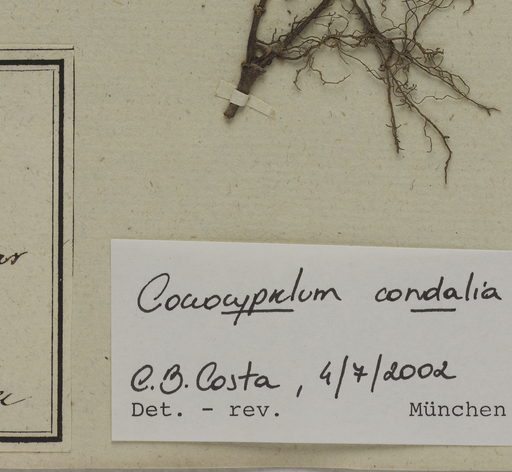 Cococypselum condalia
C.B. Costa , 4/7/2002
Det. - rev. München